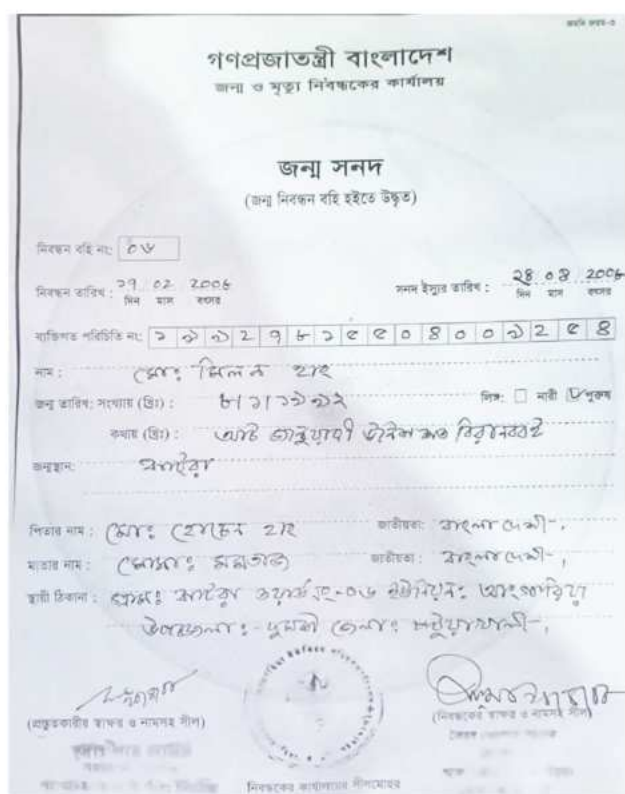 গণপ্রজাতন্ত্রী বাংলাদেশ
জন্ম ও মৃত্যু নিবন্ধকের কার্যালয়
জন্ম সনদ
(জন্ম নিবন্ধন বহি হইতে উদ্ধৃত)
নিবন্ধন বহি নং: ০৬
নিবন্ধন তারিখ : ২০০৬ সনদ ইস্যুর তারিখ : ২৪ ০৪ ২০০৬
দিন মাস বৎসর দিন মাস বৎসর
ব্যক্তিগত পরিচিতি নং:
নাম : মোঃ মিলন
জন্ম তারিখ: সংখ্যায় (খ্রিঃ) : ৮/১/১৯৯২ লিঙ্গ: নারী পুরুষ
কথায় (খ্রিঃ) : আট জানুয়ারী উনিশ শত বিরানব্বই
জন্মস্থান:
পিতার নাম : মোঃ হোচেন জাতীয়তা: বাংলাদেশী
মাতার নাম : মোসাঃ মমতাজ জাতীয়তা: বাংলাদেশী
স্থায়ী ঠিকানা : গ্রামঃ ওয়ার্ড নং-০৬ ইউনিয়নঃ আংগারিয়া
উপজেলাঃ দুমকী জেলাঃ পটুয়াখালী
(প্রস্তুতকারীর স্বাক্ষর ও নামসহ সীল) (নিবন্ধকের স্বাক্ষর ও নামসহ সীল)
নিবন্ধকের কার্যালয়ের সীলমোহর